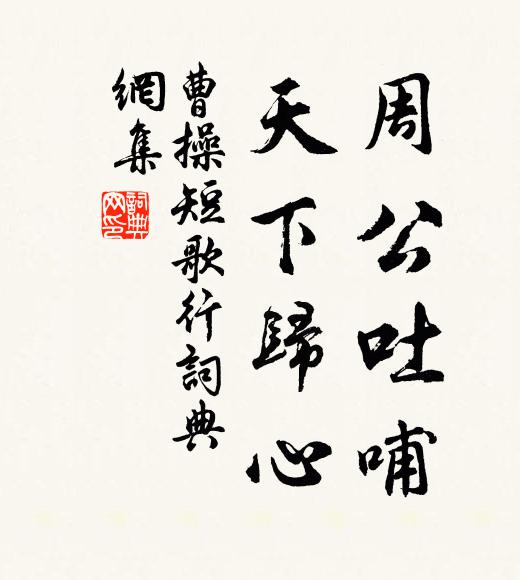 周公吐哺
天下歸心
曹操短歌行詞典
網集
詞典
网印